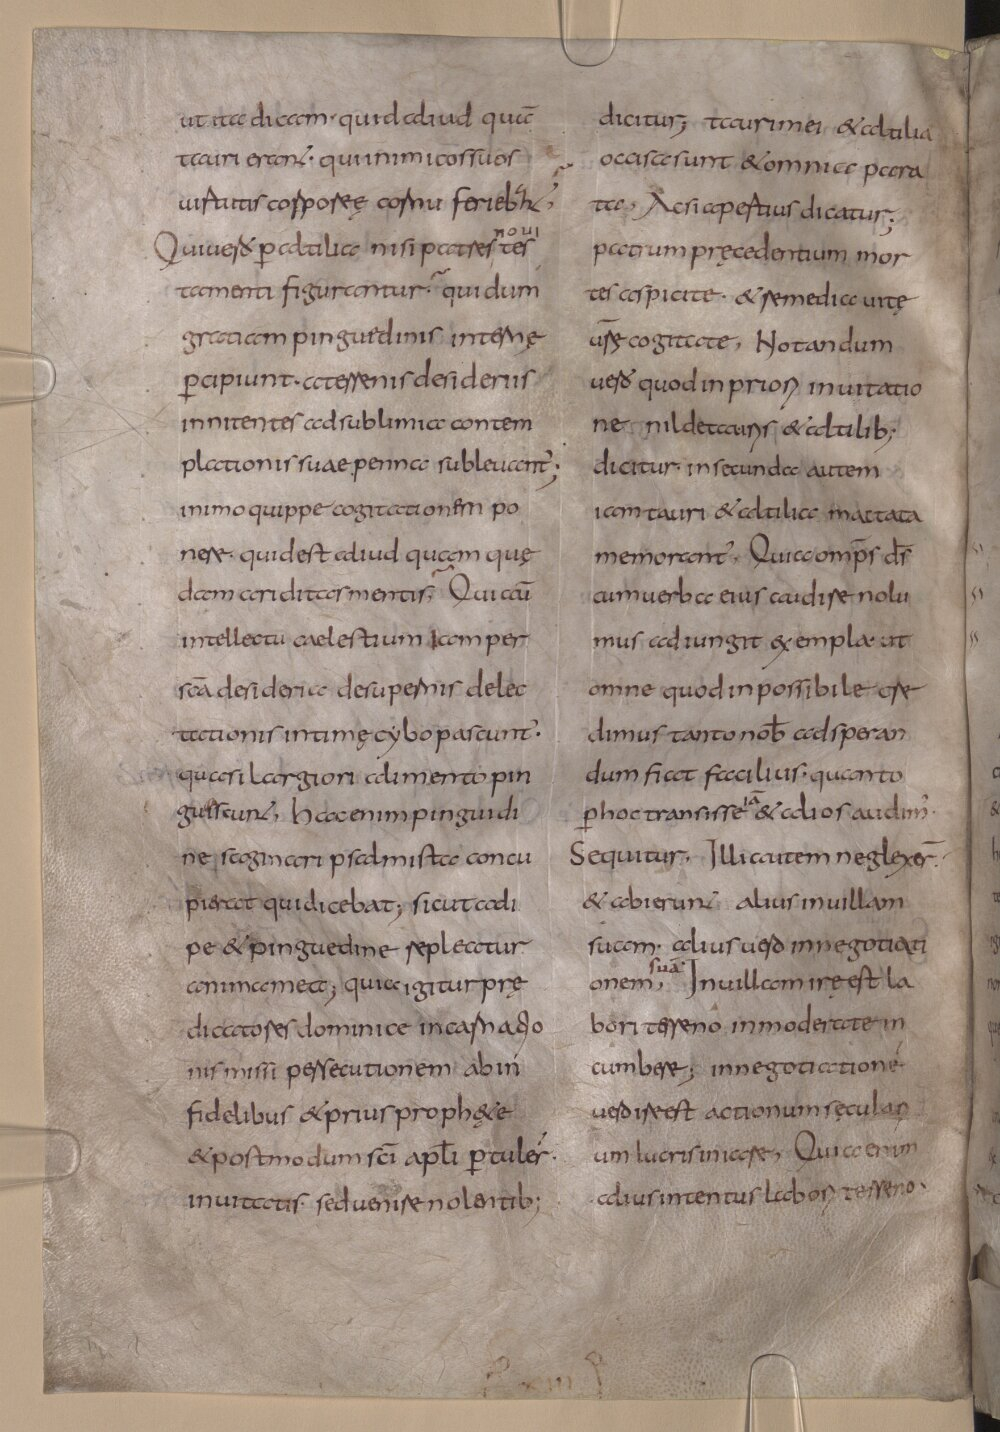 ut ita dicam· quid aliud quā
tauri erant· qui inimicos suos
uirtutis corporeę cornu feriebant;
Qui uero ꝑ altilia nisi patres noui tes
tamenti figurantur· qui dum
gratiam pinguedinis internę
ꝑcipiunt· a terrenis desideriis
innitentes ad sublimia contem
plationis suae penna subleuant᷑;
in imo quippe cogitationem po
nere· quid est aliud quam quę
dam ariditas mentis; Qui aū
intellectu caelestium iam per
scā desideria de supernis delec
tationis intimę cybo pascunt᷑·
quasi largiori alimento pin
guescunt; hac enim pinguidi
ne saginari psalmista concu
pierat qui dicebat; sicut adi
pe & pinguedine repleatur
anima mea; quia igitur prę
dicatores dominice incarnatio
nis missi persecutionem ab in
fidelibus & prius proph&e
& postmodum sc̄i apl̄i ꝑtuler̄·
inuitatis· sed uenire nolentib;
dicitur; tauri mei & altilia
occisa sunt & omnia para
ta; Ac si apertius dicatur;
patrum pręcedentium mor
tes aspicite· & remedia uitę
ur̄ę cogitate; Notandum
uero quod in priori inuitatio
ne nil de tauris & altilib;
dicitur· in secunda autem
iam tauri & altilia mactata
memorant᷑; Quia omp̄s ds̄
cum uerba eius audire nolu
mus adiungit exempla· ut
omne quod inpossibile cre
dimus tanto nob̄ ad speran
dum fiat facilius· quanto
ꝑ hoc transisse iā & alios audim᷒·
Sequitur; Illi autem neglexer̄·
& abierunt alius in uillam
suam· alius uero in negotiati
onem suā; In uillam ire est la
bori terreno inmoderate in
cumbere; in negotiationē
uero ire est actionum seculari
um lucris iniare; Quia enim
alius intentus labori terreno·